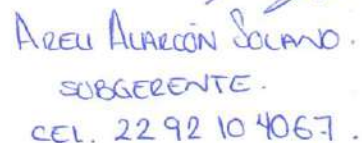 ARELI ALARCÓN SOLANO.
SUBGERENTE.
CEL. 22 92 10 4067.